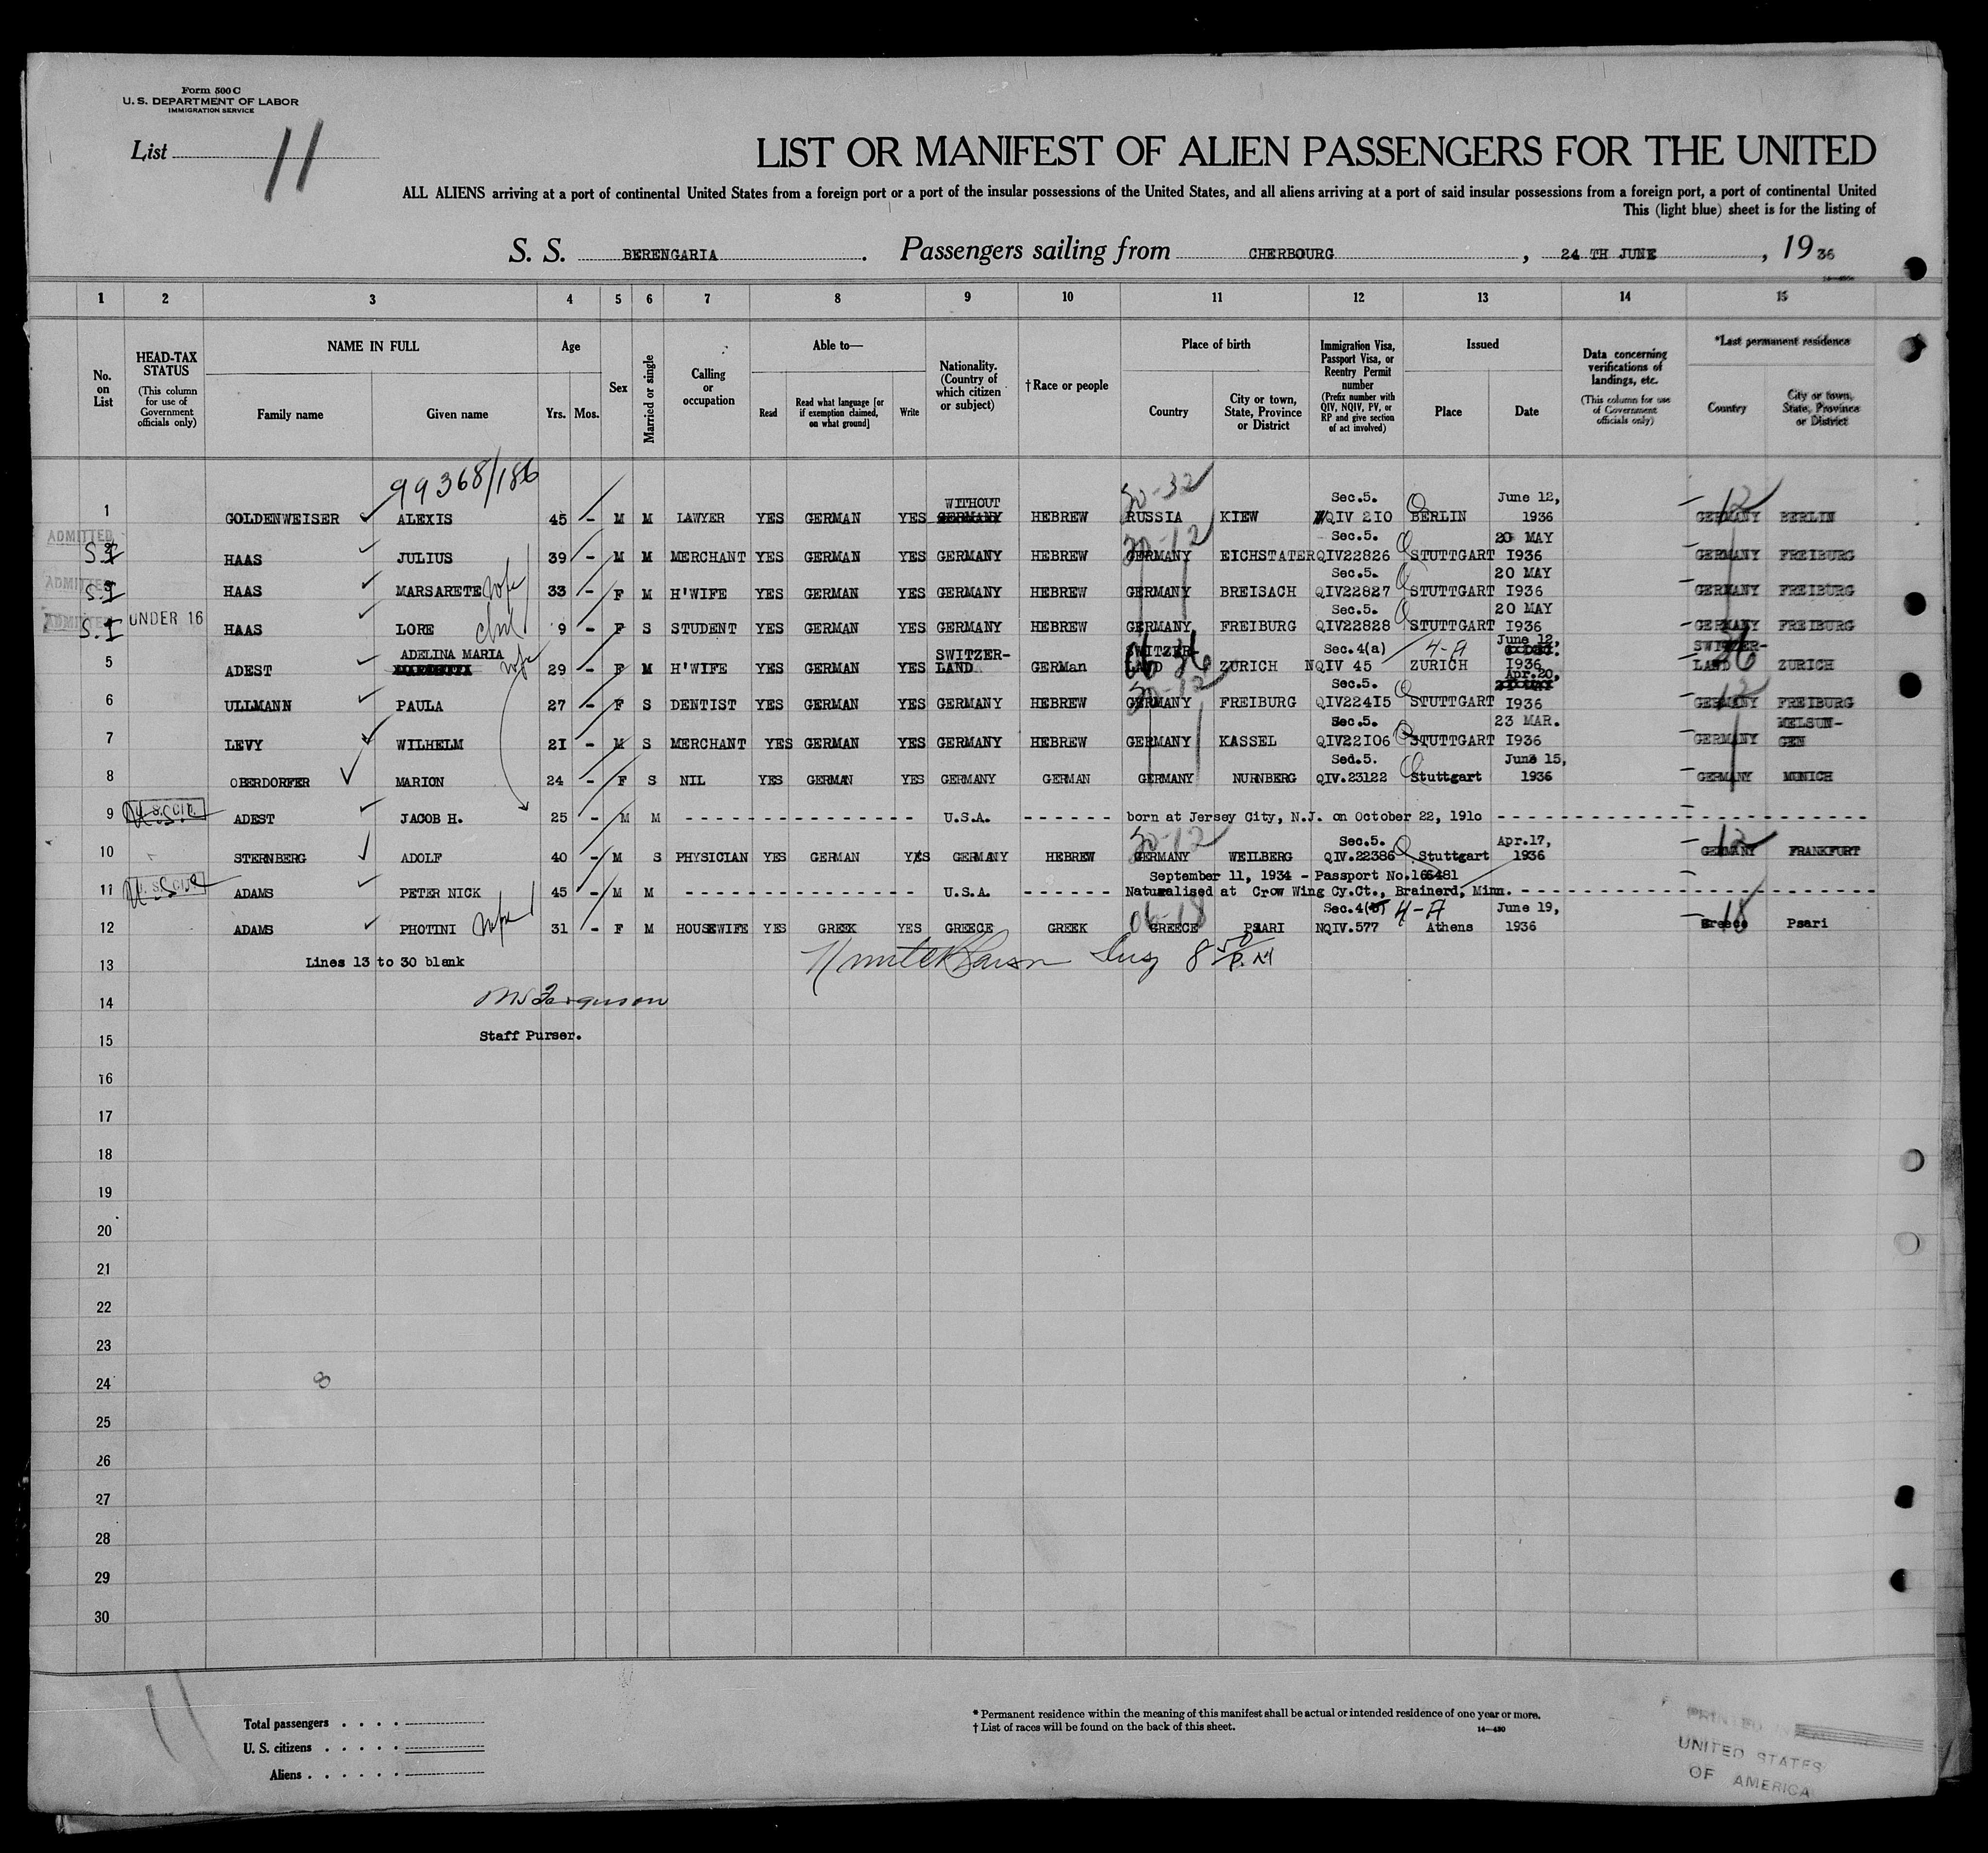 Form 500 C
U. S. DEPARTMENT OF LABOR
IMMIGRATION SERVICE
List 11
LIST OR MANIFEST OF ALIEN PASSENGERS FOR THE UNITED
ALL ALIENS arriving at a port of continental United States from a foreign port or a port of the insular possessions of the United States, and all aliens arriving at a port of said insular possessions from a foreign port, a port of continental United
This (light blue) sheet is for the listing of
S. S. BERENGARIA. Passengers sailing from CHERBOURG, 24 TH JUNE, 1936
1 2 3 4 5 6 7 8 9 10 11 12 13 14 15
No. on List
HEAD-TAX STATUS (This column for use of Government officials only)
NAME IN FULL Family name Given name
Age Yrs. Mos.
Sex
Married or single
Calling or occupation
Able to— Read Read what language [or if exemption claimed, on what ground] Write
Nationality. (Country of which citizen or subject)
†Race or people
Place of birth Country City or town, State, Province or District
Immigration Visa, Passport Visa, or Reentry Permit number (Prefix number with QIV, NQIV, PV, or RP and give section of act involved)
Issued Place Date
Data concerning verifications of landings, etc. (This column for use of Government officials only)
*Last permanent residence Country City or town, State, Province or District
99368/186
30-32 12
WITHOUT Sec.5. June 12,
1 GOLDENWEISER ALEXIS 45 - M M LAWYER YES GERMAN YES GERMANY HEBREW RUSSIA KIEW NQIV 210 BERLIN 1936 GERMANY BERLIN
ADMITTED 30-12 Sec.5. 20 MAY
S.I HAAS JULIUS 39 - M M MERCHANT YES GERMAN YES GERMANY HEBREW GERMANY EICHSTATER QIV22826 STUTTGART I936 GERMANY FREIBURG
ADMITTED Sec.5. 20 MAY
S.I HAAS MARSARETE wife 33 - F M H'WIFE YES GERMAN YES GERMANY HEBREW GERMANY BREISACH QIV22827 STUTTGART I936 GERMANY FREIBURG
ADMITTED Sec.5. 20 MAY
S.I UNDER 16 HAAS LORE 9 - F S STUDENT YES GERMAN YES GERMANY HEBREW GERMANY FREIBURG QIV22828 STUTTGART I936 GERMANY FREIBURG
ADELINA MARIA SWITZER- SWITZER- Sec.4(a) 4-A June 12, SWITZER-
5 ADEST wife 29 - F M H'WIFE YES GERMAN YES LAND GERMan LAND ZURICH NQIV 45 ZURICH I936 LAND ZURICH
06 36 36
30-12 Sec.5. Apr.20, 12
6 ULLMANN PAULA 27 - F S DENTIST YES GERMAN YES GERMANY HEBREW GERMANY FREIBURG QIV224I5 STUTTGART I936 GERMANY FREIBURG
Sec.5. 23 MAR. MELSUN-
7 LEVY WILHELM 2I - M S MERCHANT YES GERMAN YES GERMANY HEBREW GERMANY KASSEL QIV22I06 STUTTGART I936 GERMANY GEN
Sed.5. June 15,
8 OBERDORFER MARION 24 - F S NIL YES GERMAN YES GERMANY GERMAN GERMANY NURNBERG QIV.23122 Stuttgart 1936 GERMANY MUNICH
9 ADEST JACOB H. 25 M M - - - - U.S.A. - - - - born at Jersey City, N.J. on October 22, 1910 - - - -
30-12 Sec.5. Apr.17, 12
10 STERNBERG ADOLF 40 - M S PHYSICIAN YES GERMAN YES GERMANY HEBREW GERMANY WEILBERG QIV.22386 Stuttgart 1936 GERMANY FRANKFURT
September 11, 1934 - Passport No.166481
11 ADAMS PETER NICK 45 - M M - - - - U.S.A. - - - - Naturalised at Crow Wing Cy.Ct., Brainerd, Minn. - - - -
06-18 Sec.4(5) 4-A June 19, 18
12 ADAMS PHOTINI wife 31 - F M HOUSEWIFE YES GREEK YES GREECE GREEK GREECE PSARI NQIV.577 Athens 1936 Greece Psari
13 Lines 13 to 30 blank
8 50 P.M
14
15 Staff Purser.
16
17
18
19
20
21
22
23
24 8
25
26
27
28
29
30
11
Total passengers . . . .
U. S. citizens . . . . .
Aliens . . . . . .
* Permanent residence within the meaning of this manifest shall be actual or intended residence of one year or more.
† List of races will be found on the back of this sheet. 14—430
PRINTED IN
UNITED STATES
OF AMERICA